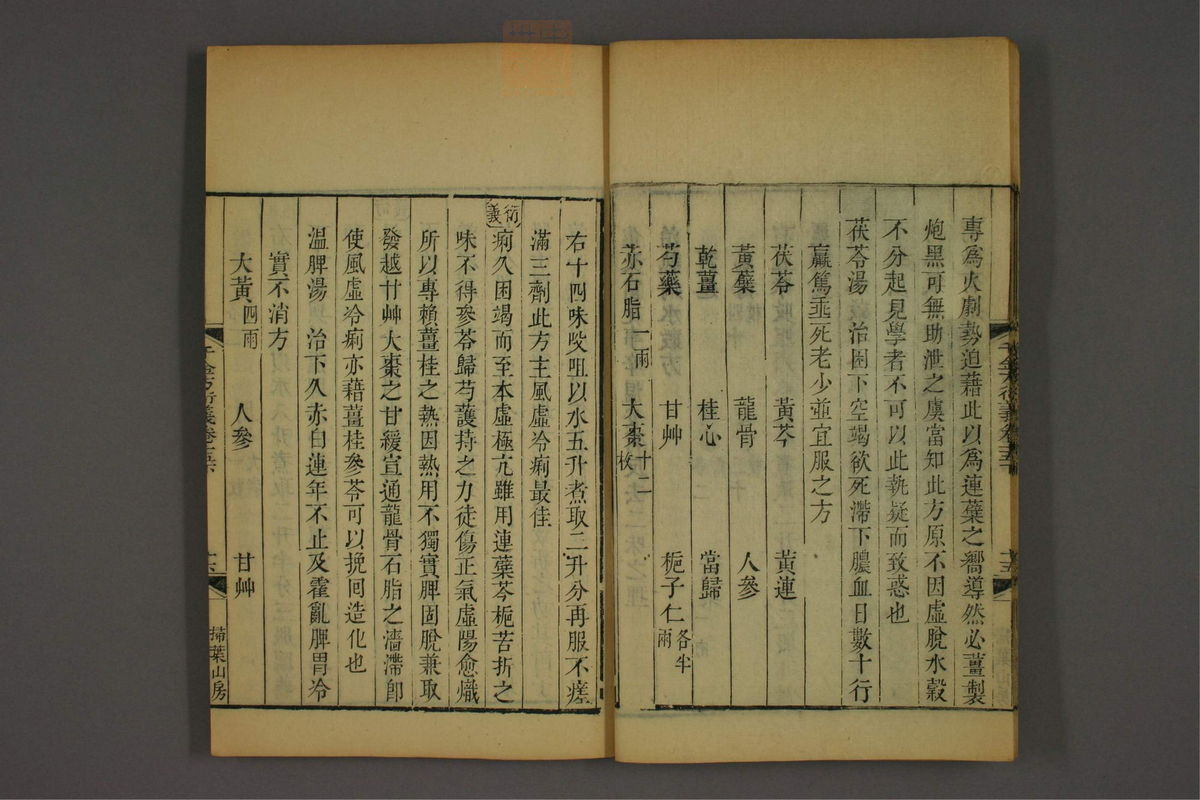 專爲火劇勢迫藉此以爲連蘗之嚮導然必薑製
炮黑可無助泄之虞當知此方原不因虛脫水穀
不分起見學者不可以此執疑而致惑也
茯苓湯 治困下空竭欲死滯下膿血日數十行
羸篤垂死老少並宜服之方
茯苓 黃芩 黃連
黃蘗 龍骨 人參
乾薑 桂心 當歸
芍藥 甘艸 梔子仁各半兩
赤石脂一兩 大棗十二枚
右十四味㕮咀以水五升煮取二升分再服不瘥
滿三劑此方主風虛冷痢最佳
衍義 痢久困竭而至本虛極亢雖用連蘗芩梔苦折之
味不得參苓歸芍護持之力徒傷正氣虛陽愈熾
所以專賴薑桂之熱因熱用不獨實脾固脫兼取
發越甘艸大棗之甘緩宣通龍骨石脂之濇滯卽
使風虛冷痢亦藉薑桂參苓可以挽回造化也
溫脾湯 治下久赤白連年不止及霍亂脾胃冷
實不消方
大黃四兩 人參 甘艸
千金方衍義卷十五
掃葉山房